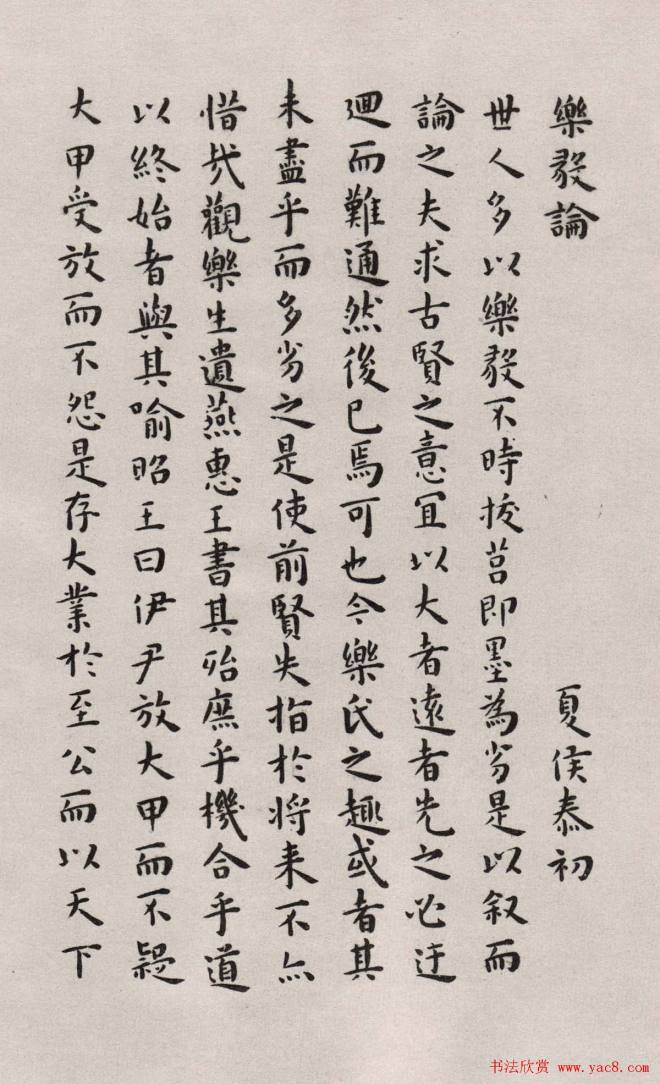 樂毅論 夏侯泰初
世人多以樂毅不時拔莒即墨為劣是以叙而
論之夫求古賢之意宜以大者遠者先之必迂
迴而難通然後已焉可也今樂氏之趣或者其
未盡乎而多劣之是使前賢失指於将来不亦
惜哉觀樂生遺燕惠王書其殆庶乎機合乎道
以終始者與其喻昭王曰伊尹放大甲而不疑
大甲受放而不怨是存大業於至公而以天下
书法欣赏 www.yac8.com